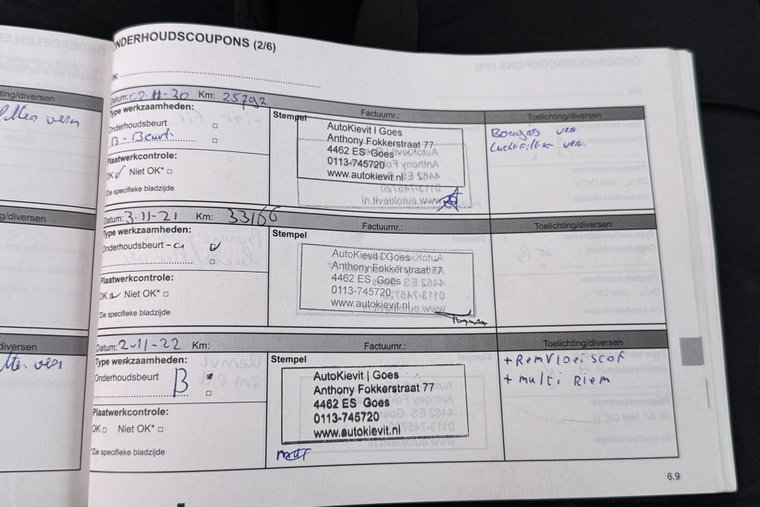 ONDERHOUDSCOUPONS (2/6)
Datum: 02-11-20 Km: 25792
Type werkzaamheden:
Onderhoudsbeurt
B-Beurt
Plaatwerkcontrole:
OK Niet OK*
*Zie specifieke bladzijde
Factuurnr.:
Stempel
AutoKievit | Goes
Anthony Fokkerstraat 77
4462 ES Goes
0113-745720
www.autokievit.nl
Toelichting/diversen
Bougies ver.
Luchtfilter ver.
Datum: 3-11-21 Km: 33166
Type werkzaamheden:
Onderhoudsbeurt
Plaatwerkcontrole:
OK Niet OK*
*Zie specifieke bladzijde
Factuurnr.:
Stempel
AutoKievit | Goes
Anthony Fokkerstraat 77
4462 ES Goes
0113-745720
www.autokievit.nl
Toelichting/diversen
Datum: 2-11-22 Km:
Type werkzaamheden:
Onderhoudsbeurt
B
Plaatwerkcontrole:
OK Niet OK*
*Zie specifieke bladzijde
Factuurnr.:
Stempel
AutoKievit | Goes
Anthony Fokkerstraat 77
4462 ES Goes
0113-745720
www.autokievit.nl
Toelichting/diversen
+ Remvloeiscof
+ multi Riem
6.9